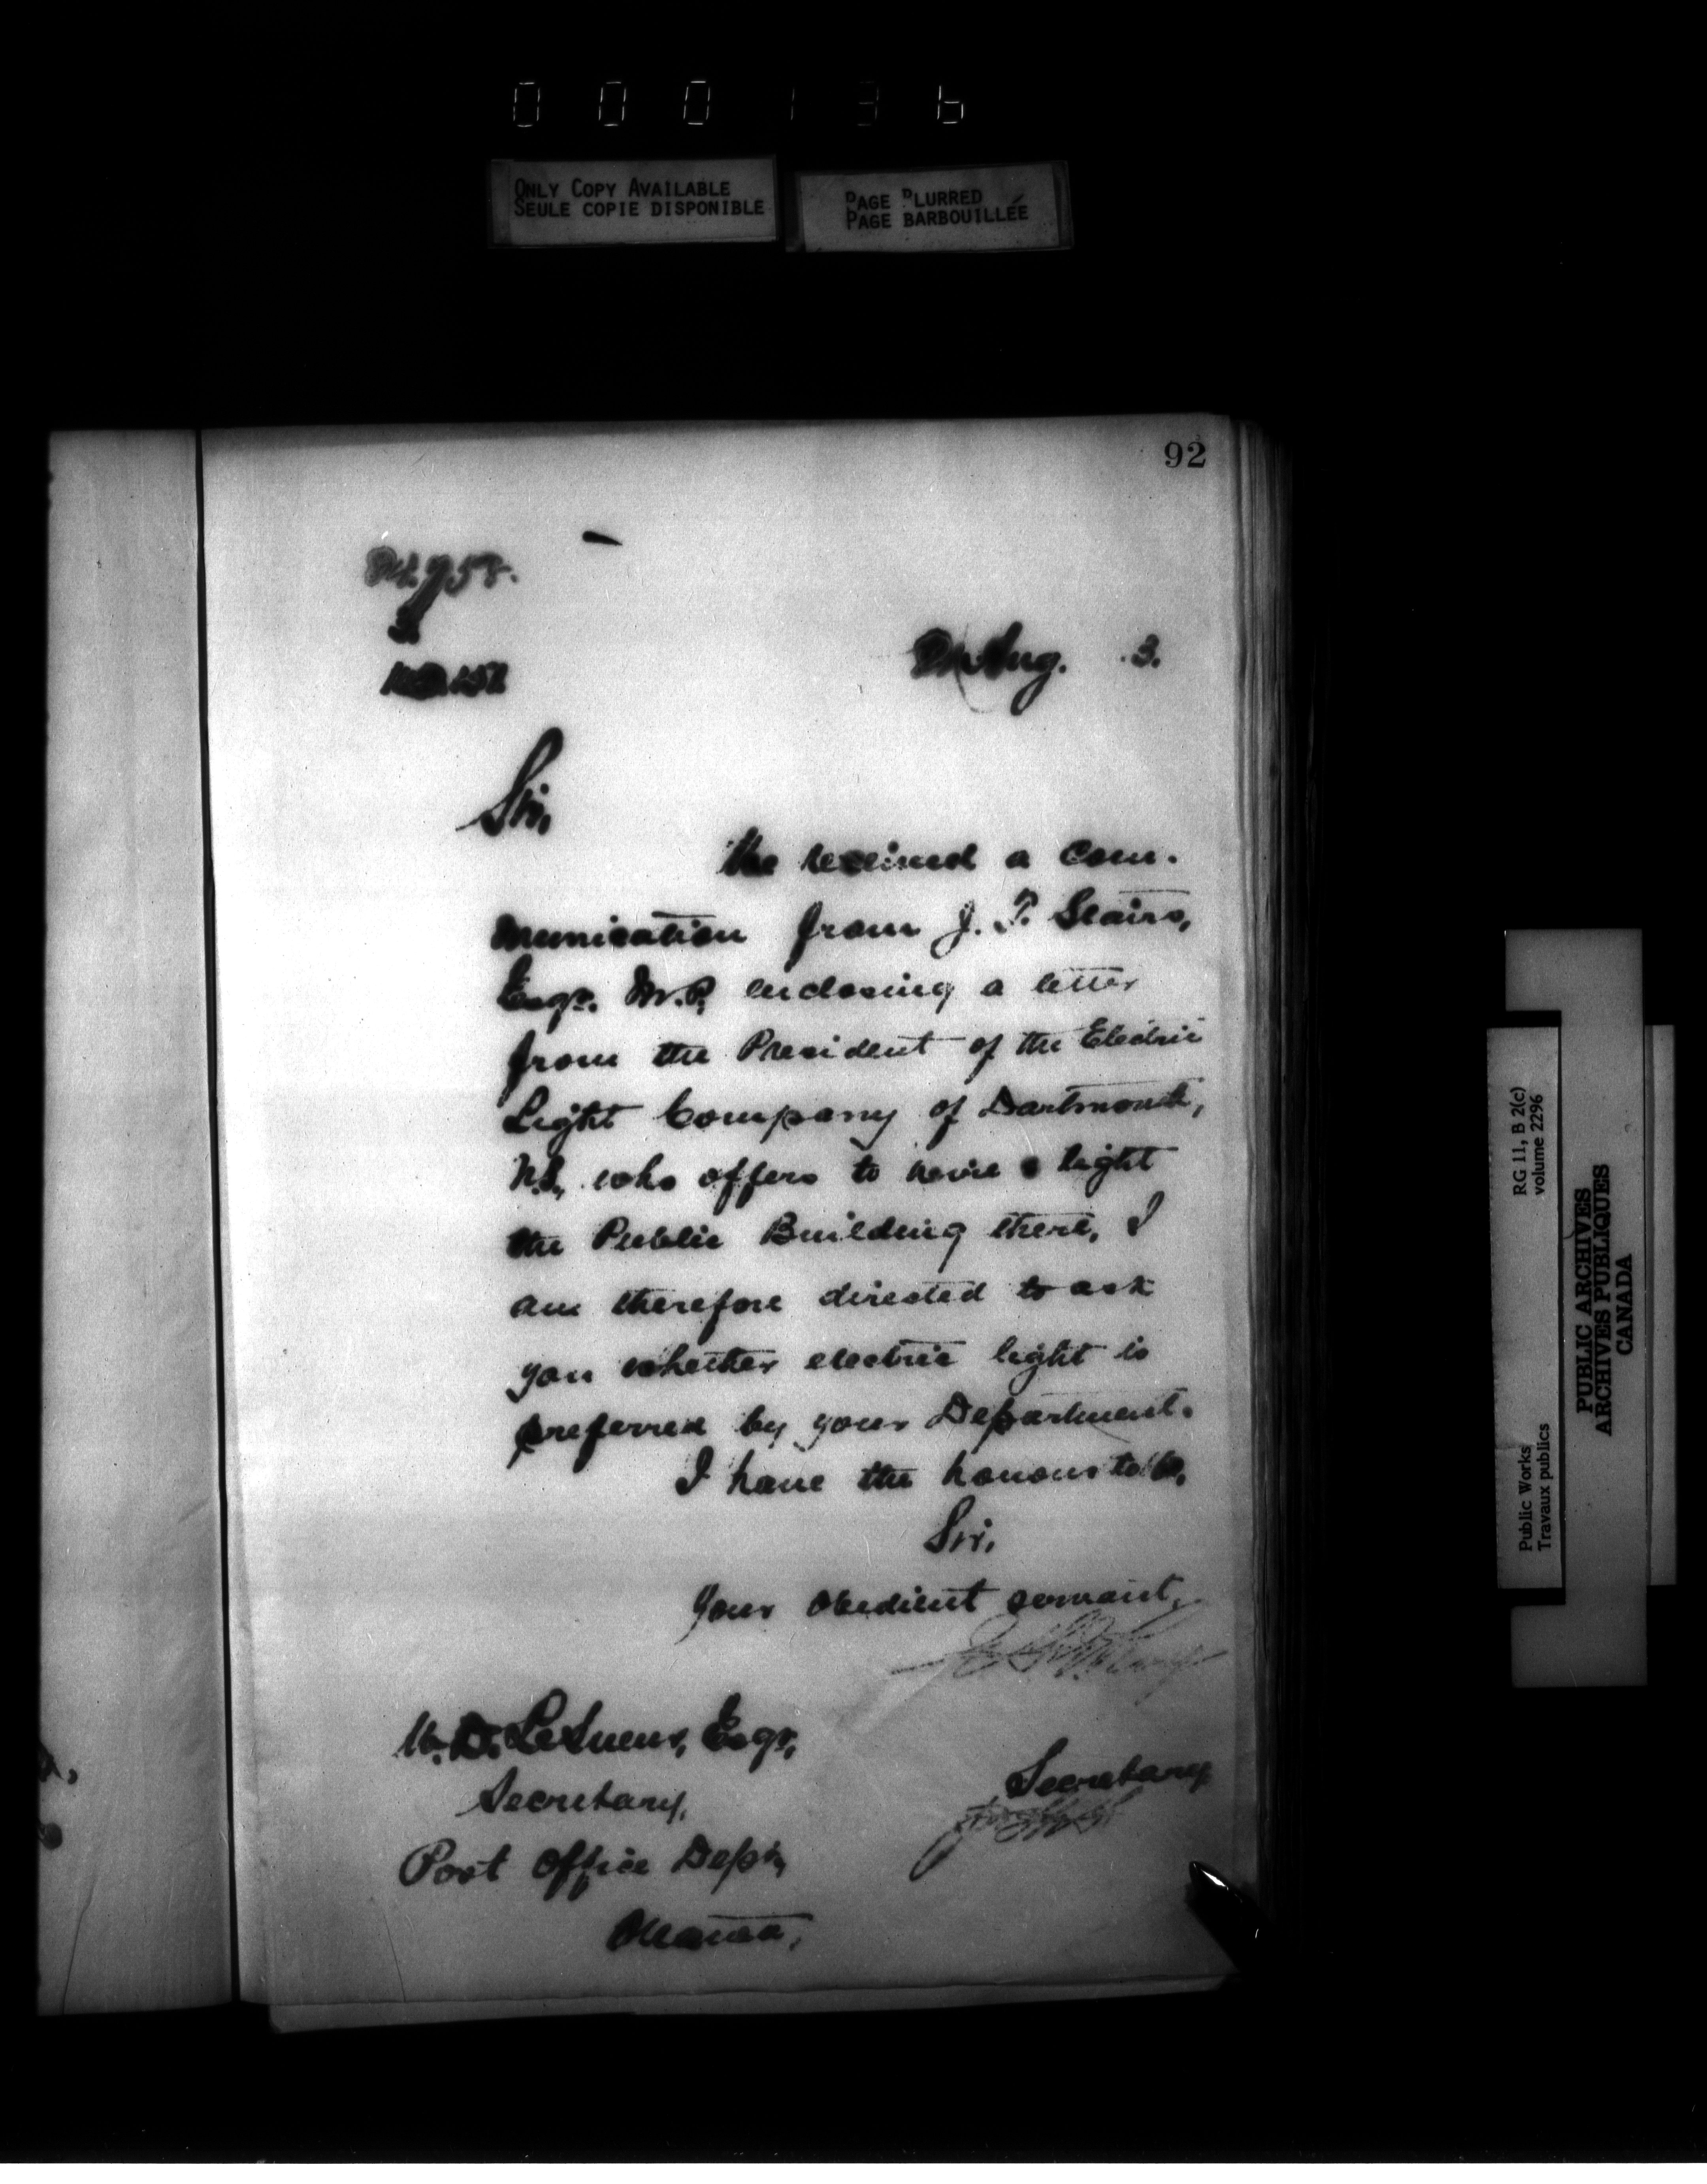 000136
ONLY COPY AVAILABLE
SEULE COPIE DISPONIBLE
PAGE BLURRED
PAGE BARBOUILLÉE
92
Aug. 3.
Sir,
received a com-
munication from J. F. Stairs,
Esqr. M.P., enclosing a letter
from the President of the Electric
Light Company of Dartmouth,
N.S., who offers to wire & light
the Public Building there, I
am therefore directed to ask
you whether electric light is
preferred by your Department.
I have the honour to be,
Sir,
Your obedient servant,
Secretary
W. D. LeSueur, Esqr,
Secretary,
Post Office Dept,
Ottawa,
RG 11, B 2(c)
volume 2296
Public Works
Travaux publics
PUBLIC ARCHIVES
ARCHIVES PUBLIQUES
CANADA